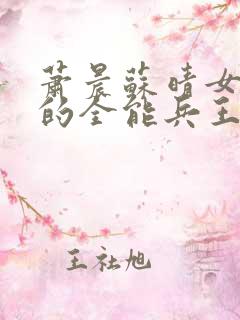 蕭晨蘇晴女
的全能兵王
王社旭